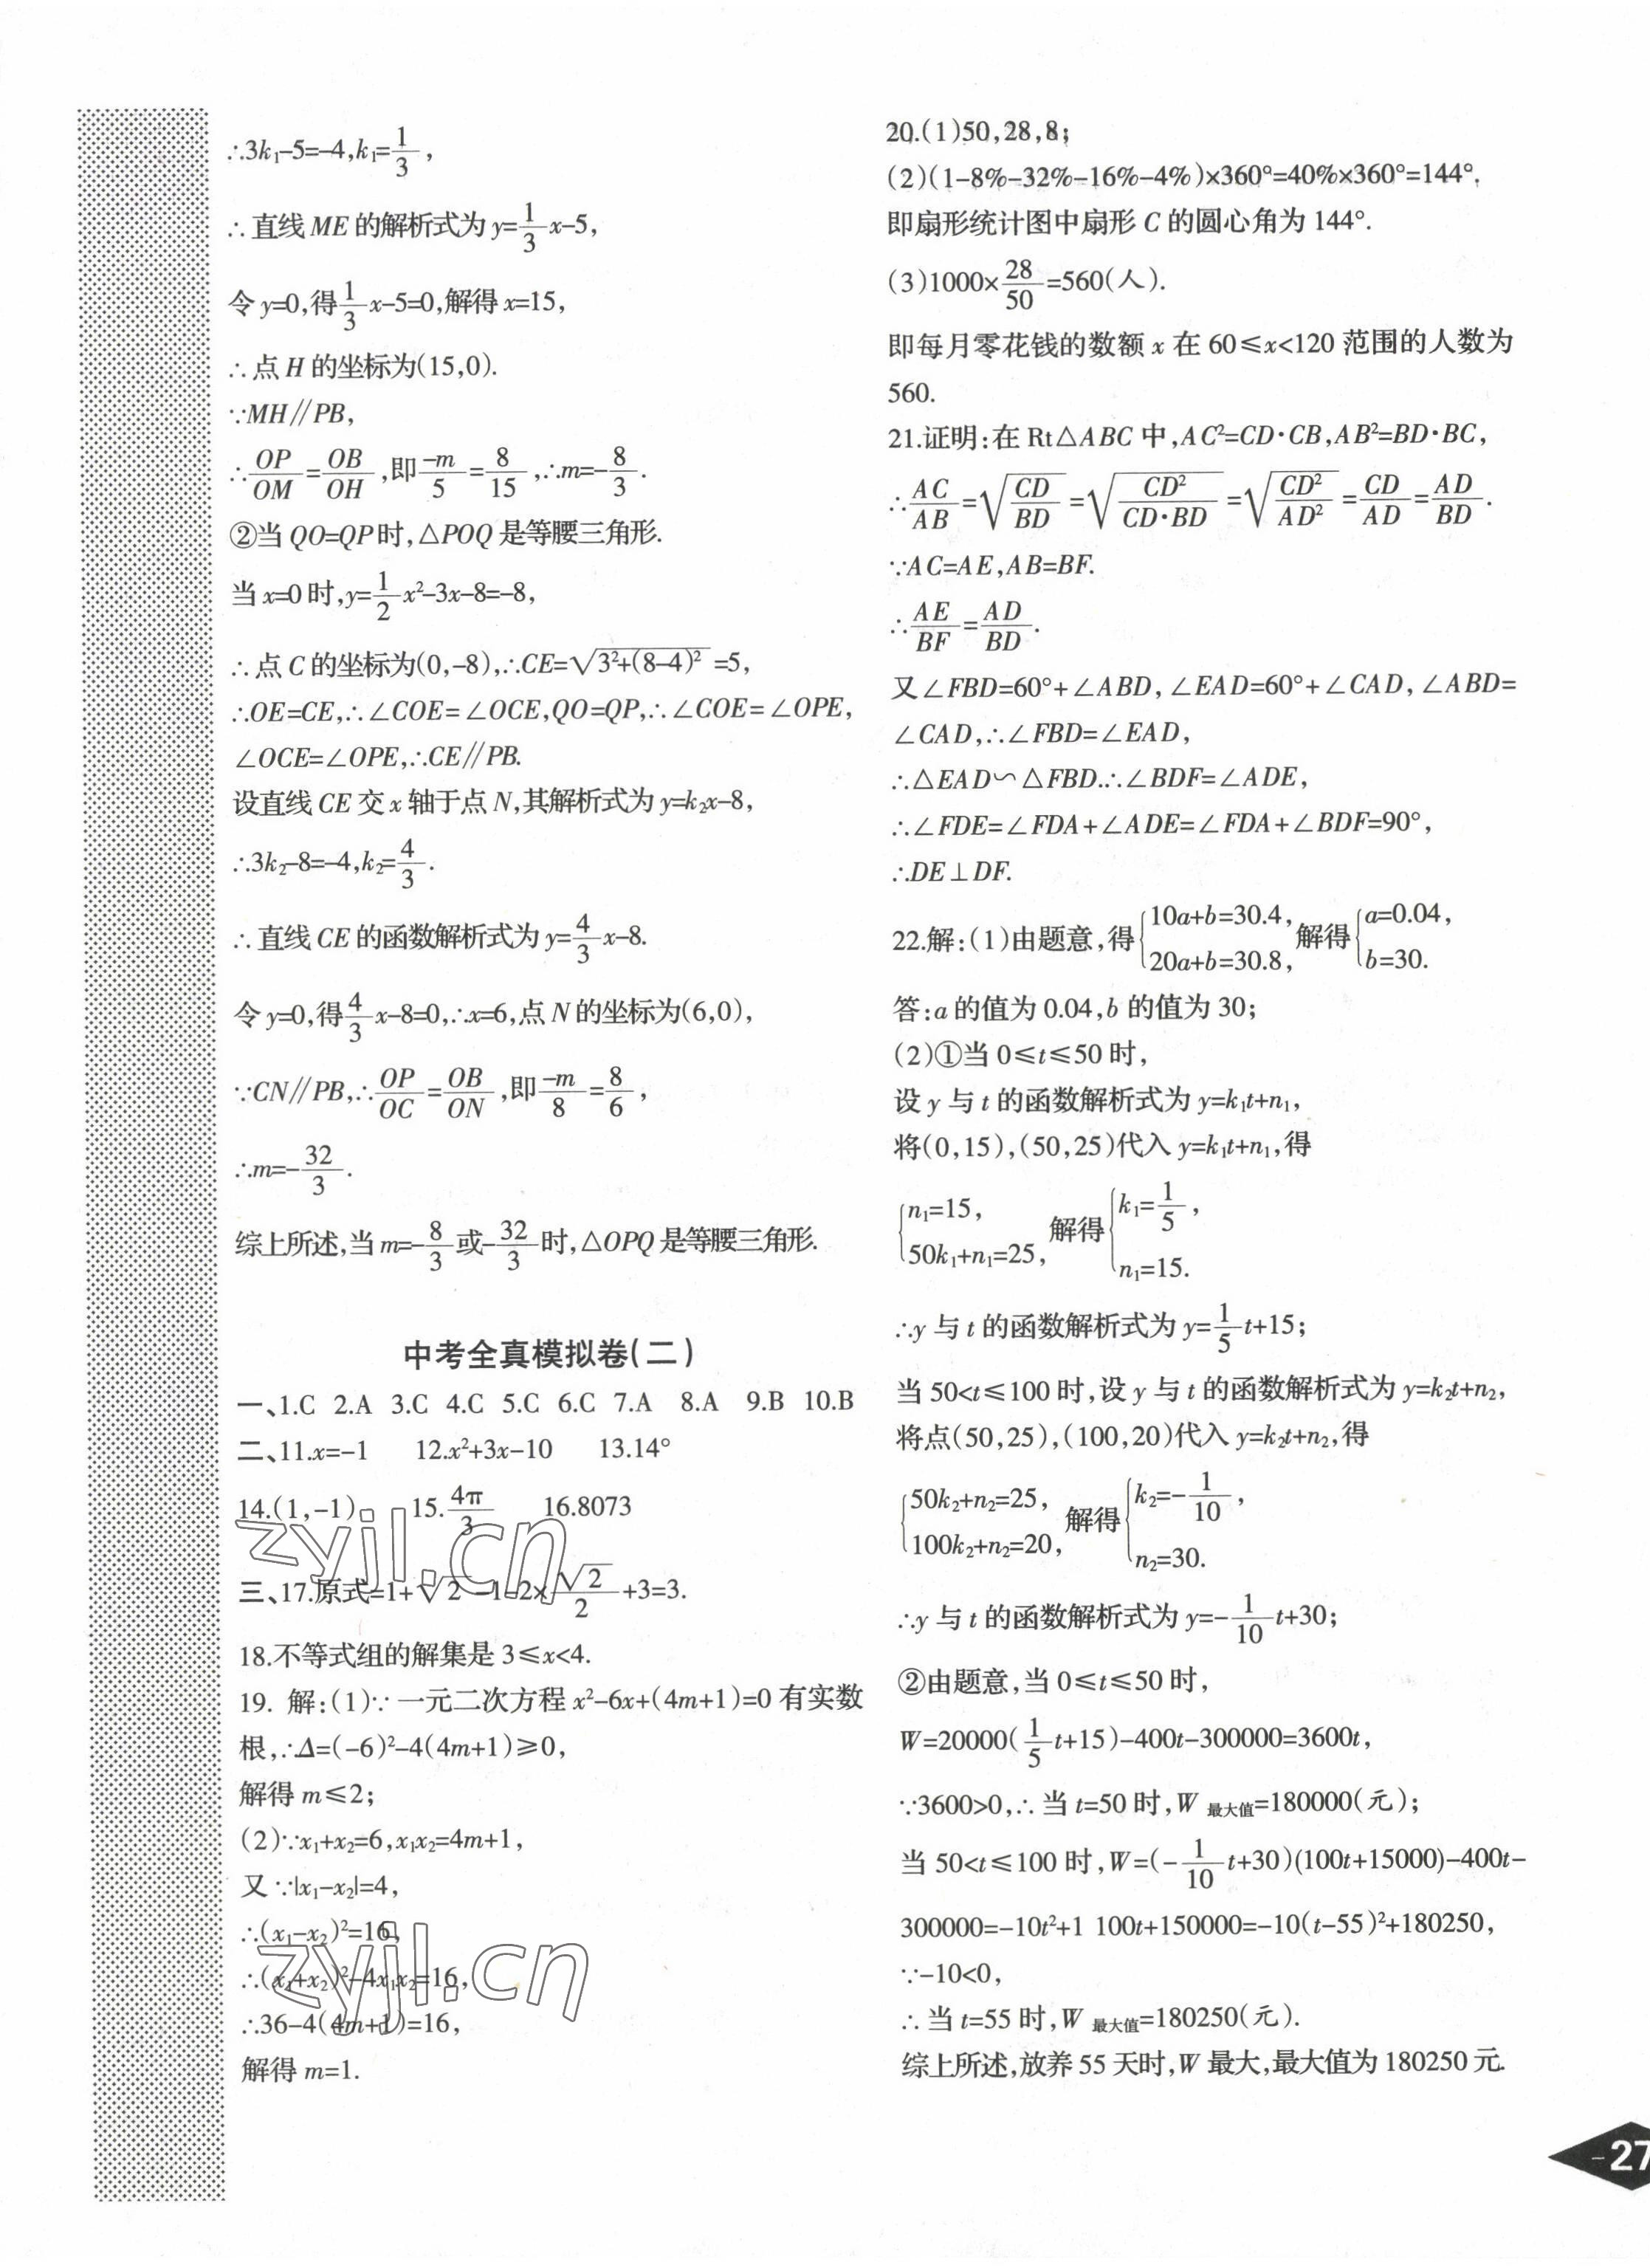 ∴3k₁-5=-4,k₁=1/3,
∴直线ME的解析式为y=1/3x-5,
令y=0,得1/3x-5=0,解得x=15,
∴点H的坐标为(15,0).
∵MH∥PB,
∴OP/OM=OB/OH,即-m/5=8/15,∴m=-8/3.
②当QO=QP时,△POQ是等腰三角形.
当x=0时,y=1/2x²-3x-8=-8,
∴点C的坐标为(0,-8),∴CE=√(3²+(8-4)²)=5,
∴OE=CE,∴∠COE=∠OCE,QO=QP,∴∠COE=∠OPE,
∠OCE=∠OPE,∴CE∥PB.
设直线CE交x轴于点N,其解析式为y=k₂x-8,
∴3k₂-8=-4,k₂=4/3.
∴直线CE的函数解析式为y=4/3x-8.
令y=0,得4/3x-8=0,∴x=6,点N的坐标为(6,0),
∵CN∥PB,∴OP/OC=OB/ON,即-m/8=8/6,
∴m=-32/3.
综上所述,当m=-8/3或-32/3时,△OPQ是等腰三角形.
中考全真模拟卷(二)
一、1.C 2.A 3.C 4.C 5.C 6.C 7.A 8.A 9.B 10.B
二、11.x=-1 12.x²+3x-10 13.14°
14.(1,-1) 15.4π/3 16.8073
zyjl.cn
三、17.原式=1+√2-1-2×√2/2+3=3.
18.不等式组的解集是3≤x<4.
19. 解:(1)∵一元二次方程x²-6x+(4m+1)=0有实数
根,∴Δ=(-6)²-4(4m+1)≥0,
解得m≤2;
(2)∵x₁+x₂=6,x₁x₂=4m+1,
又∵|x₁-x₂|=4,
∴(x₁-x₂)²=16,
zyjl.cn
∴(x₁+x₂)²-4x₁x₂=16,
∴36-4(4m+1)=16,
解得m=1.
20.(1)50,28,8;
(2)(1-8%-32%-16%-4%)×360°=40%×360°=144°.
即扇形统计图中扇形C的圆心角为144°.
(3)1000×28/50=560(人).
即每月零花钱的数额x在60≤x<120范围的人数为
560.
21.证明:在Rt△ABC中,AC²=CD·CB,AB²=BD·BC,
∴AC/AB=√(CD/BD)=√(CD²/(CD·BD))=√(CD²/AD²)=CD/AD=AD/BD.
∵AC=AE,AB=BF.
∴AE/BF=AD/BD.
又∠FBD=60°+∠ABD,∠EAD=60°+∠CAD,∠ABD=
∠CAD,∴∠FBD=∠EAD,
∴△EAD∽△FBD.∴∠BDF=∠ADE,
∴∠FDE=∠FDA+∠ADE=∠FDA+∠BDF=90°,
∴DE⊥DF.
22.解:(1)由题意,得{10a+b=30.4, 20a+b=30.8,解得{a=0.04, b=30.
答:a的值为0.04,b的值为30;
(2)①当0≤t≤50时,
设y与t的函数解析式为y=k₁t+n₁,
将(0,15),(50,25)代入y=k₁t+n₁,得
{n₁=15, 50k₁+n₁=25,解得{k₁=1/5, n₁=15.
∴y与t的函数解析式为y=1/5t+15;
当50<t≤100时,设y与t的函数解析式为y=k₂t+n₂,
将点(50,25),(100,20)代入y=k₂t+n₂,得
{50k₂+n₂=25, 100k₂+n₂=20,解得{k₂=-1/10, n₂=30.
∴y与t的函数解析式为y=-1/10t+30;
②由题意,当0≤t≤50时,
W=20000(1/5t+15)-400t-300000=3600t,
∵3600>0,∴当t=50时,W最大值=180000(元);
当50<t≤100时,W=(-1/10t+30)(100t+15000)-400t-
300000=-10t²+1 100t+150000=-10(t-55)²+180250,
∵-10<0,
∴当t=55时,W最大值=180250(元).
综上所述,放养55天时,W最大,最大值为180250元.
-27